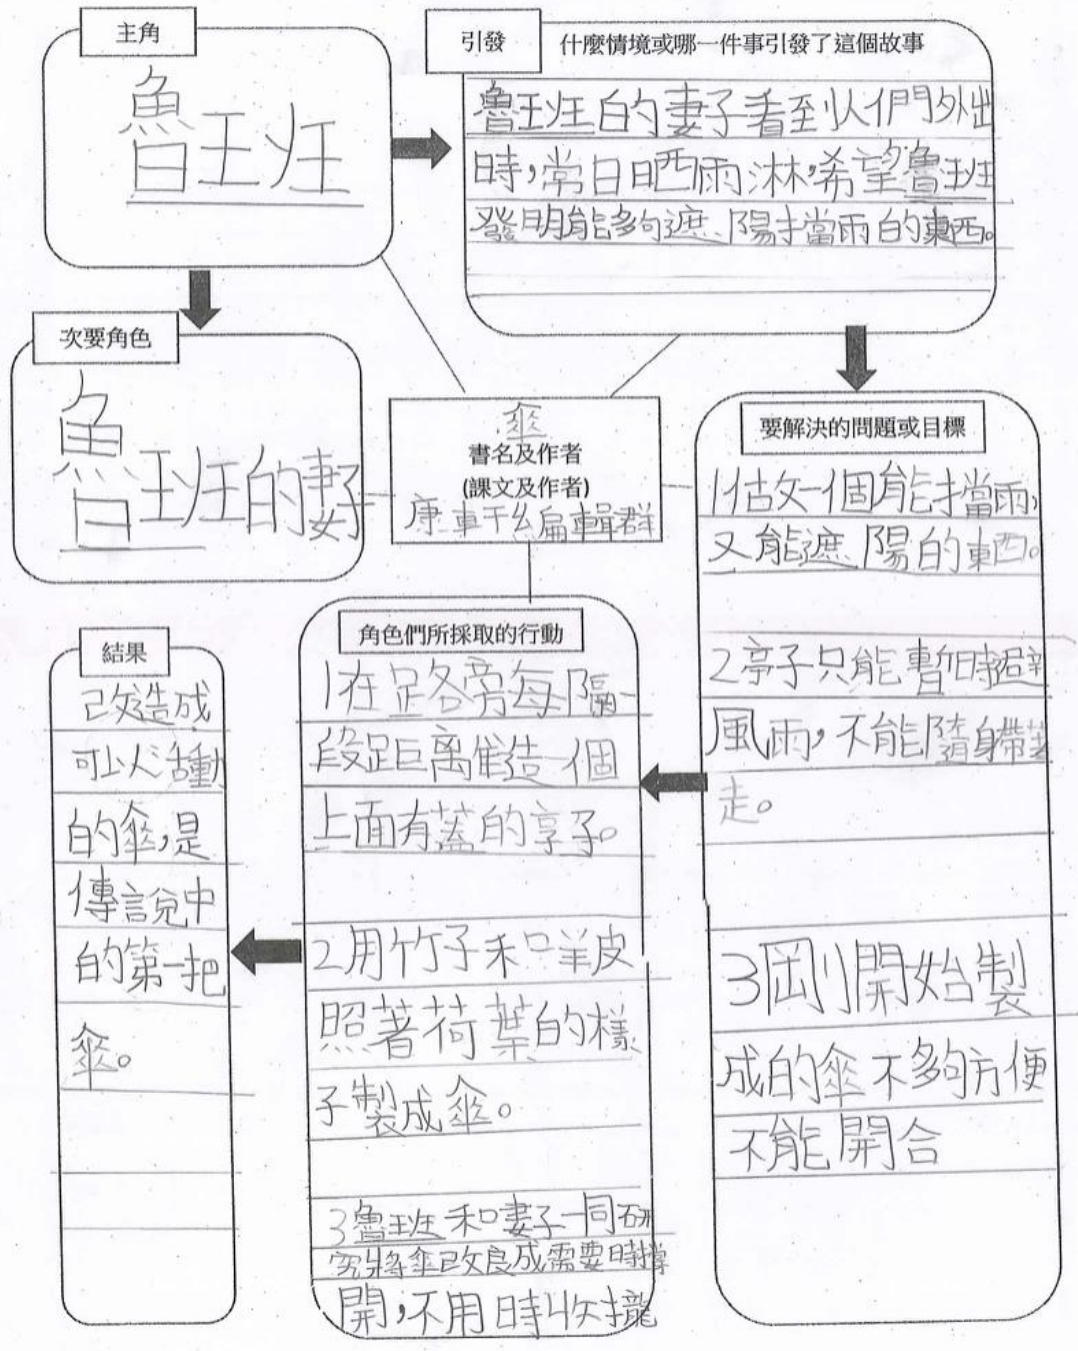 主角
魯班
引發
什麼情境或哪一件事引發了這個故事
魯班的妻子看到人們外出
時,常日晒雨淋,希望魯班
發明能夠遮陽擋雨的東西。
次要角色
魯班的妻子
傘
書名及作者
(課文及作者)
康軒編輯群
要解決的問題或目標
1做一個能擋雨,
又能遮陽的東西。
2亭子只能暫時避
風雨,不能隨身帶著
走。
3剛開始製
成的傘不夠方便
不能開合
角色們所採取的行動
1在路旁每隔一
段距離建造一個
上面有蓋的亭子。
2用竹子和羊皮
照著荷葉的樣
子製成傘。
3魯班和妻子一同研
究將傘改良成需要時撐
開,不用時收攏
結果
改造成
可以活動
的傘,是
傳說中
的第一把
傘。